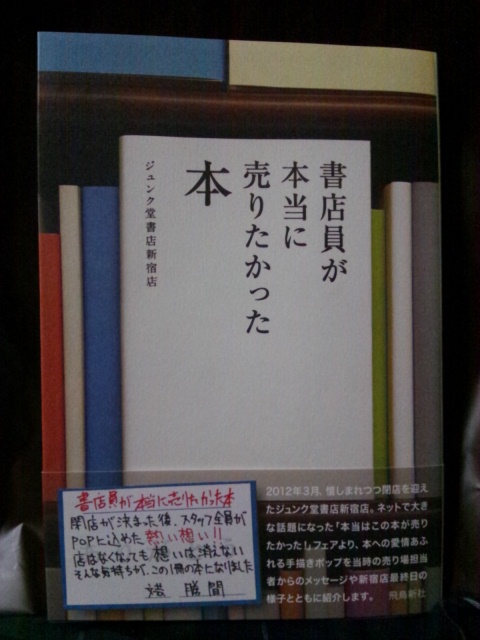 書店員が
本当に
売りたかった
本
ジュンク堂書店新宿店
書店員が本当に売りたかった本
閉店が決まった後、スタッフ全員が
POPに込めた熱い想い!!
店はなくなっても想いは消えない
そんな気持ちが、この1冊の本になりました
勝間
2012年3月、惜しまれつつ閉店を迎え
たジュンク堂書店新宿店。ネットで大き
な話題になった「本当はこの本が売り
たかった!」フェアより、本への愛情あふ
れる手描きポップを当時の売り場担当
者からのメッセージや新宿店最終日の
様子とともに紹介します。
飛鳥新社